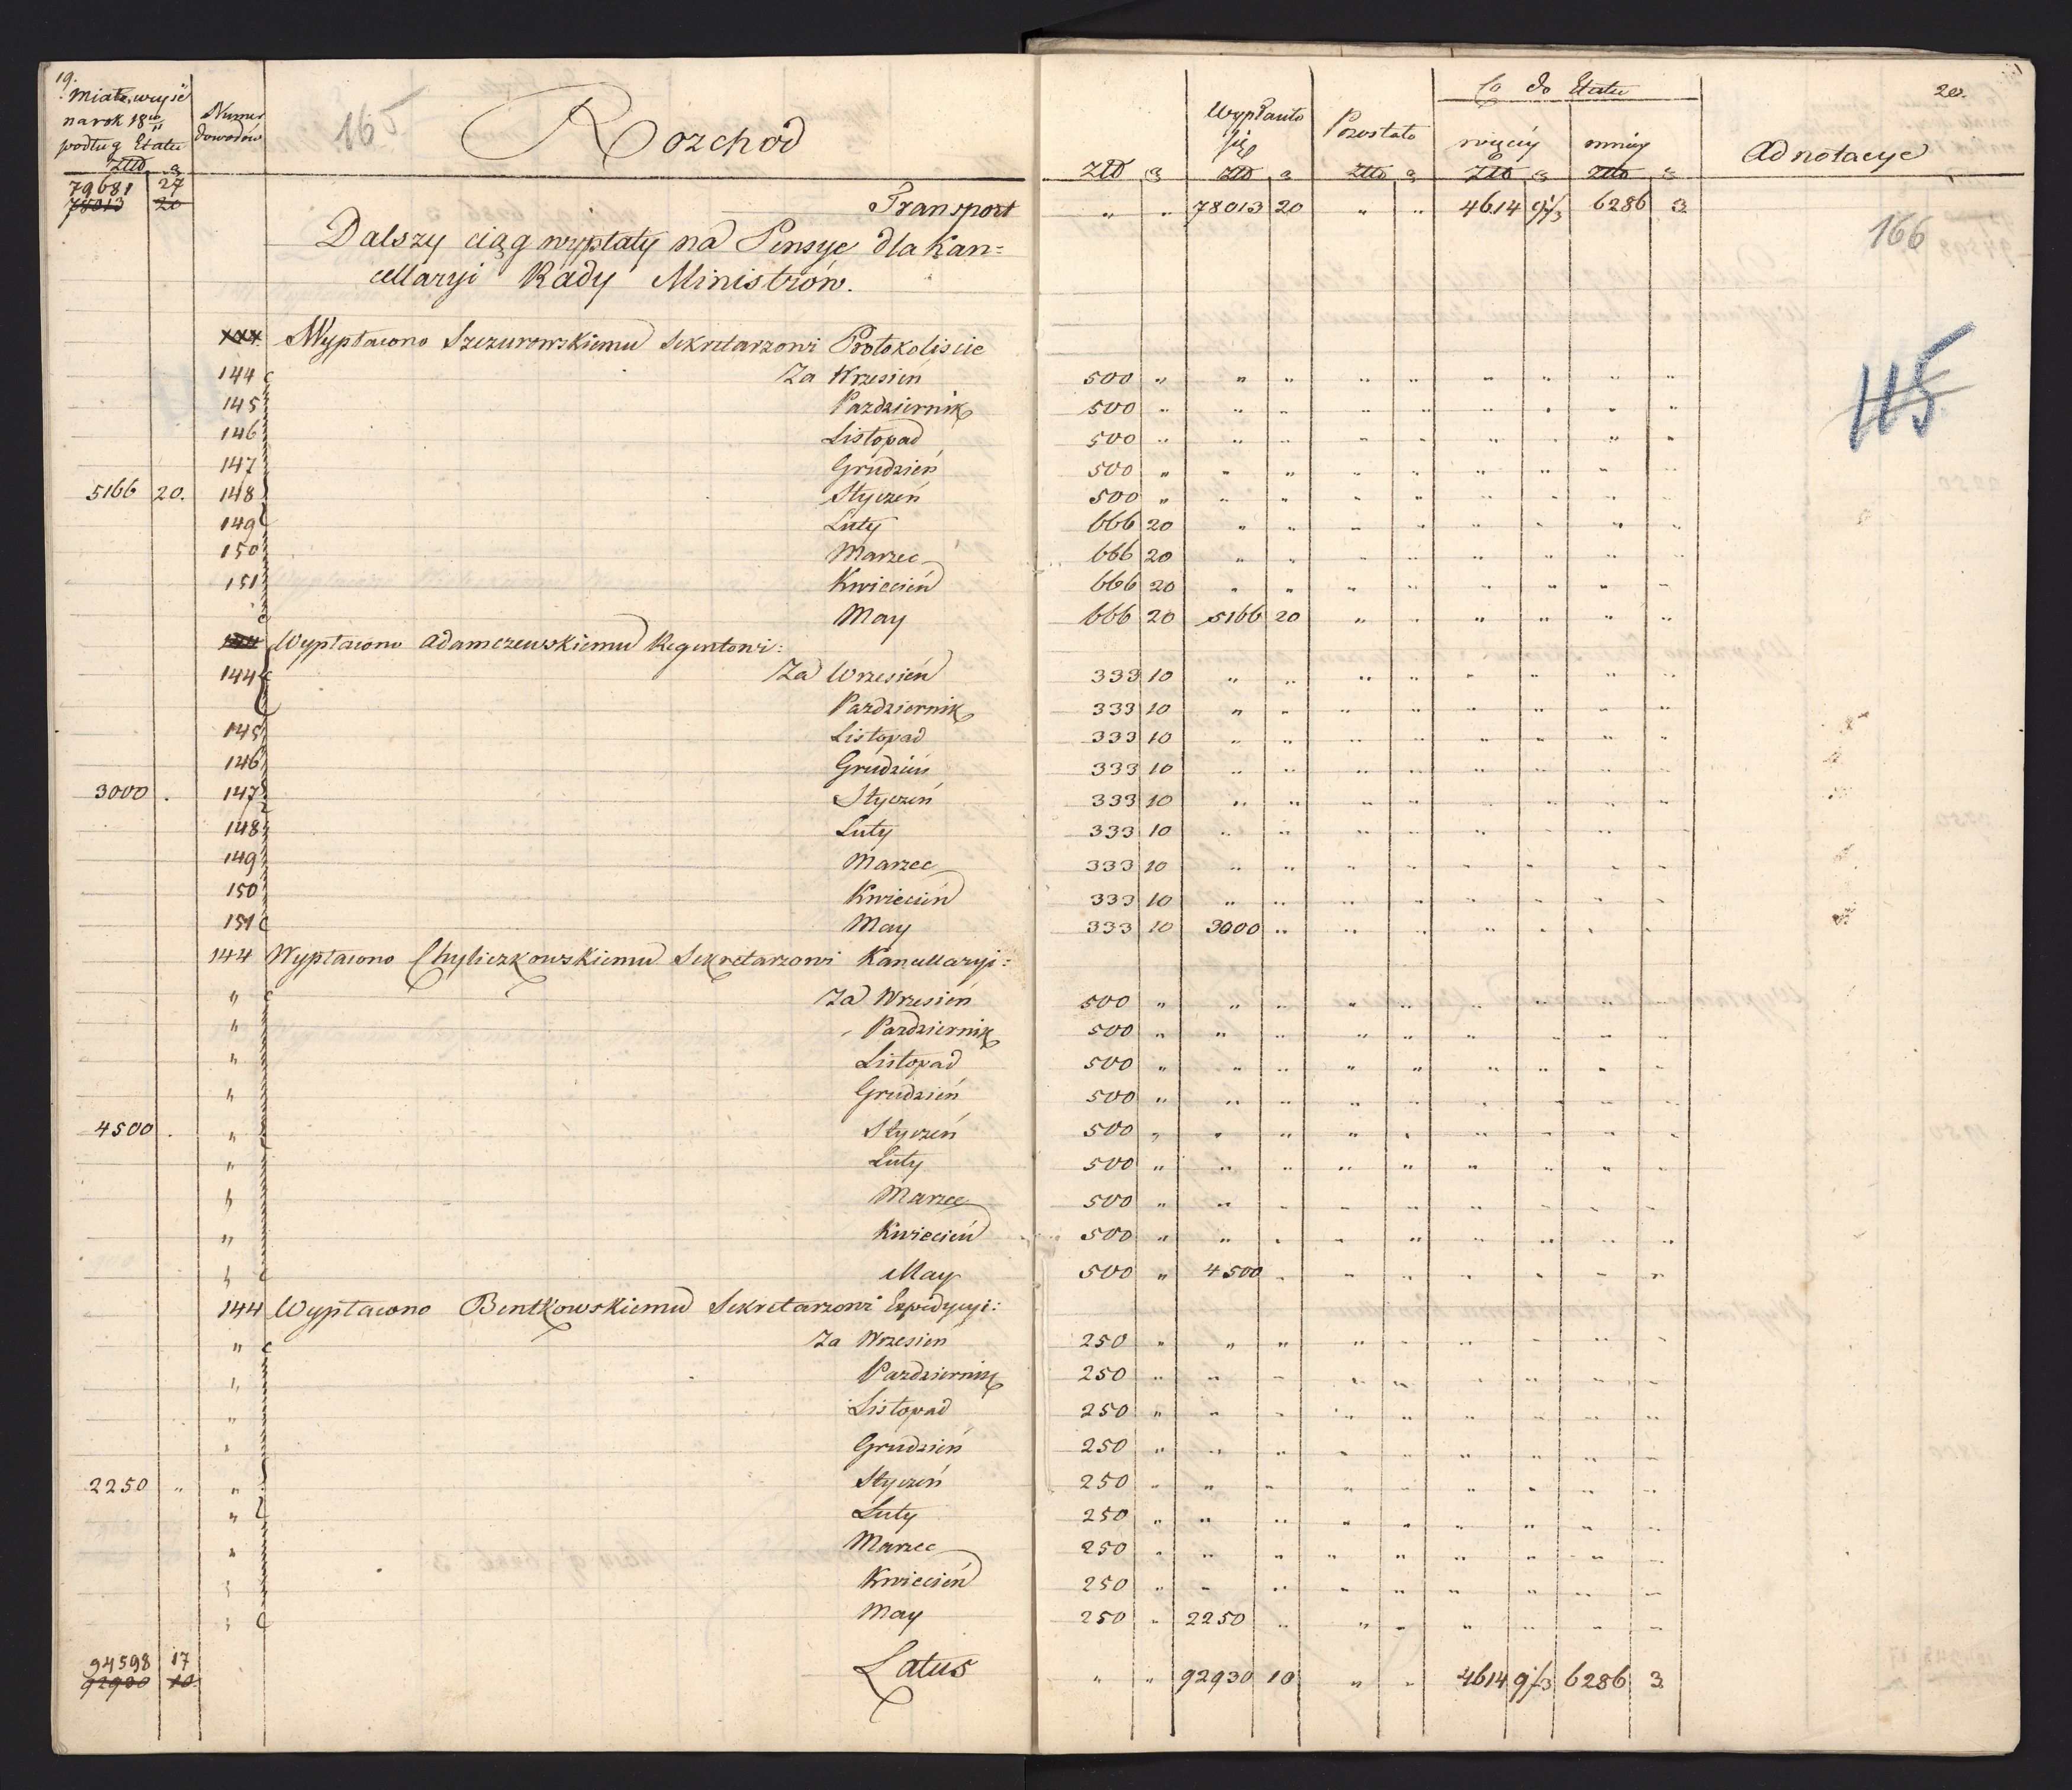 19.
Miało wyiść
na rok 18 10/11
podług Etatu
Złtt. g
Numer
dowodów
165
Rozchod
Wypłaciło
się
Pozostało
Co do Etatu
więcéy
mniéy
Adnotacye
20.
Złtt g Złtt g Złtt g Złtt g Złtt g
79681 27
78013 20
Transport " " 78013 20 " " 4614 9 1/3 6286 3
166
Dalszy ciąg wypłaty na Pensye dla Kan=
cellaryi Rady Ministrów.
144 Wypłacono Szczurowskiemu Sekretarzowi Protokoliscie
115
144 Za Wrzesień 500 "
145 Pazdziernik 500 "
146 Listopad 500 "
147 Grudzień 500 "
5166 20. 148 Styczeń 500 "
149 Luty 666 20
150 Marzec 666 20
151 Kwiecień 666 20
May 666 20 5166 20
144 Wypłacono Adamczewskiemu Regentowi:
144 Za Wrzesień 333 10
Pazdziernik 333 10
145 Listopad 333 10
146 Grudzień 333 10
3000 . 147 Styczeń 333 10
148 Luty 333 10
149 Marzec 333 10
150 Kwiecień 333 10
151 May 333 10 3000 "
144 Wypłacono Chyliczkowskiemu Sekretarzowi Kancellaryi:
" Za Wrzesień 500 "
" Pazdziernik 500 "
" Listopad 500 "
" Grudzień 500 "
4500 . " Styczeń 500 "
" Luty 500 "
" Marzec 500 "
" Kwiecień 500 "
" May 500 " 4500 "
144 Wypłacono Bentkowskiemu Sekretarzowi Expedycyi:
" Za Wrzesień 250 "
" Pazdziernik 250 "
" Listopad 250 "
" Grudzień 250 "
2250 " " Styczeń 250 "
" Luty 250 "
" Marzec 250 "
" Kwiecień 250 "
" May 250 " 2250 "
94598 17
92930 10
Latus " " 92930 10 " " 4614 9 1/3 6286 3